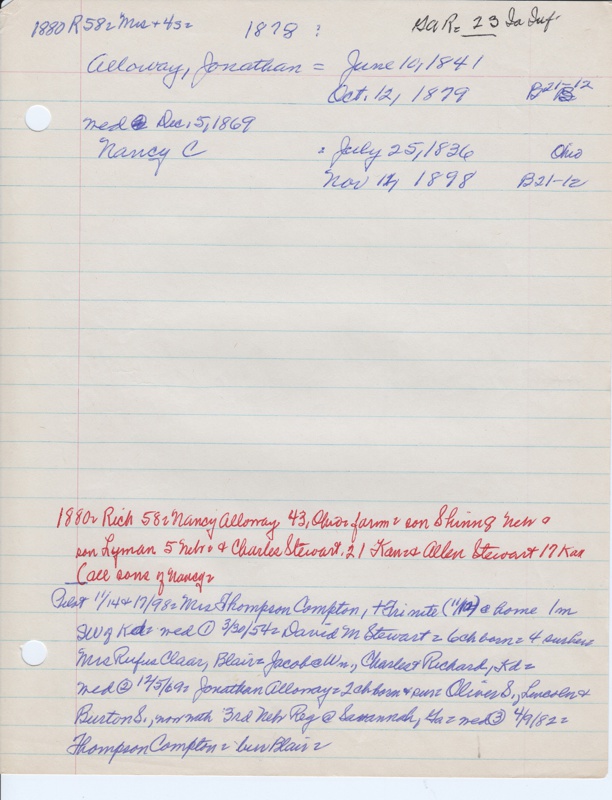 1880 R 58= Mrs + 4s= 1878 ? GAR= 23 Ia Inf.
Alloway, Jonathan = June 10, 1841
Oct. 12, 1879 B21-12
med Dec. 5, 1869
Nancy C = July 25, 1836 Ohio
Nov 12, 1898 B21-12
1880= Rich 58= Nancy Alloway 43, Ohio= farm= son Nebr
son Lyman 5 Nebr + Charles Stewart, 21 Kan= & Allen Stewart 17 Kan
(all sons of Nancy=
11/14 & 17/98= Mrs Thompson Compton, + Fri nite (11/12) @ home 1 m
SW of Kd= med ① 3/30/54= David M Stewart = 6 ch born= 4
Mrs Rufus Claar, Blair= Jacob & Wm, Charles & Richard, Kd=
med ② 12/5/69= Jonathan Alloway= 2 ch born & sur= Oliver S., Lincoln &
Burton S., now with 3rd Nebr Reg @ Savannah, Ga= med ③ 4/9/82=
Thompson Compton= bur Blair=